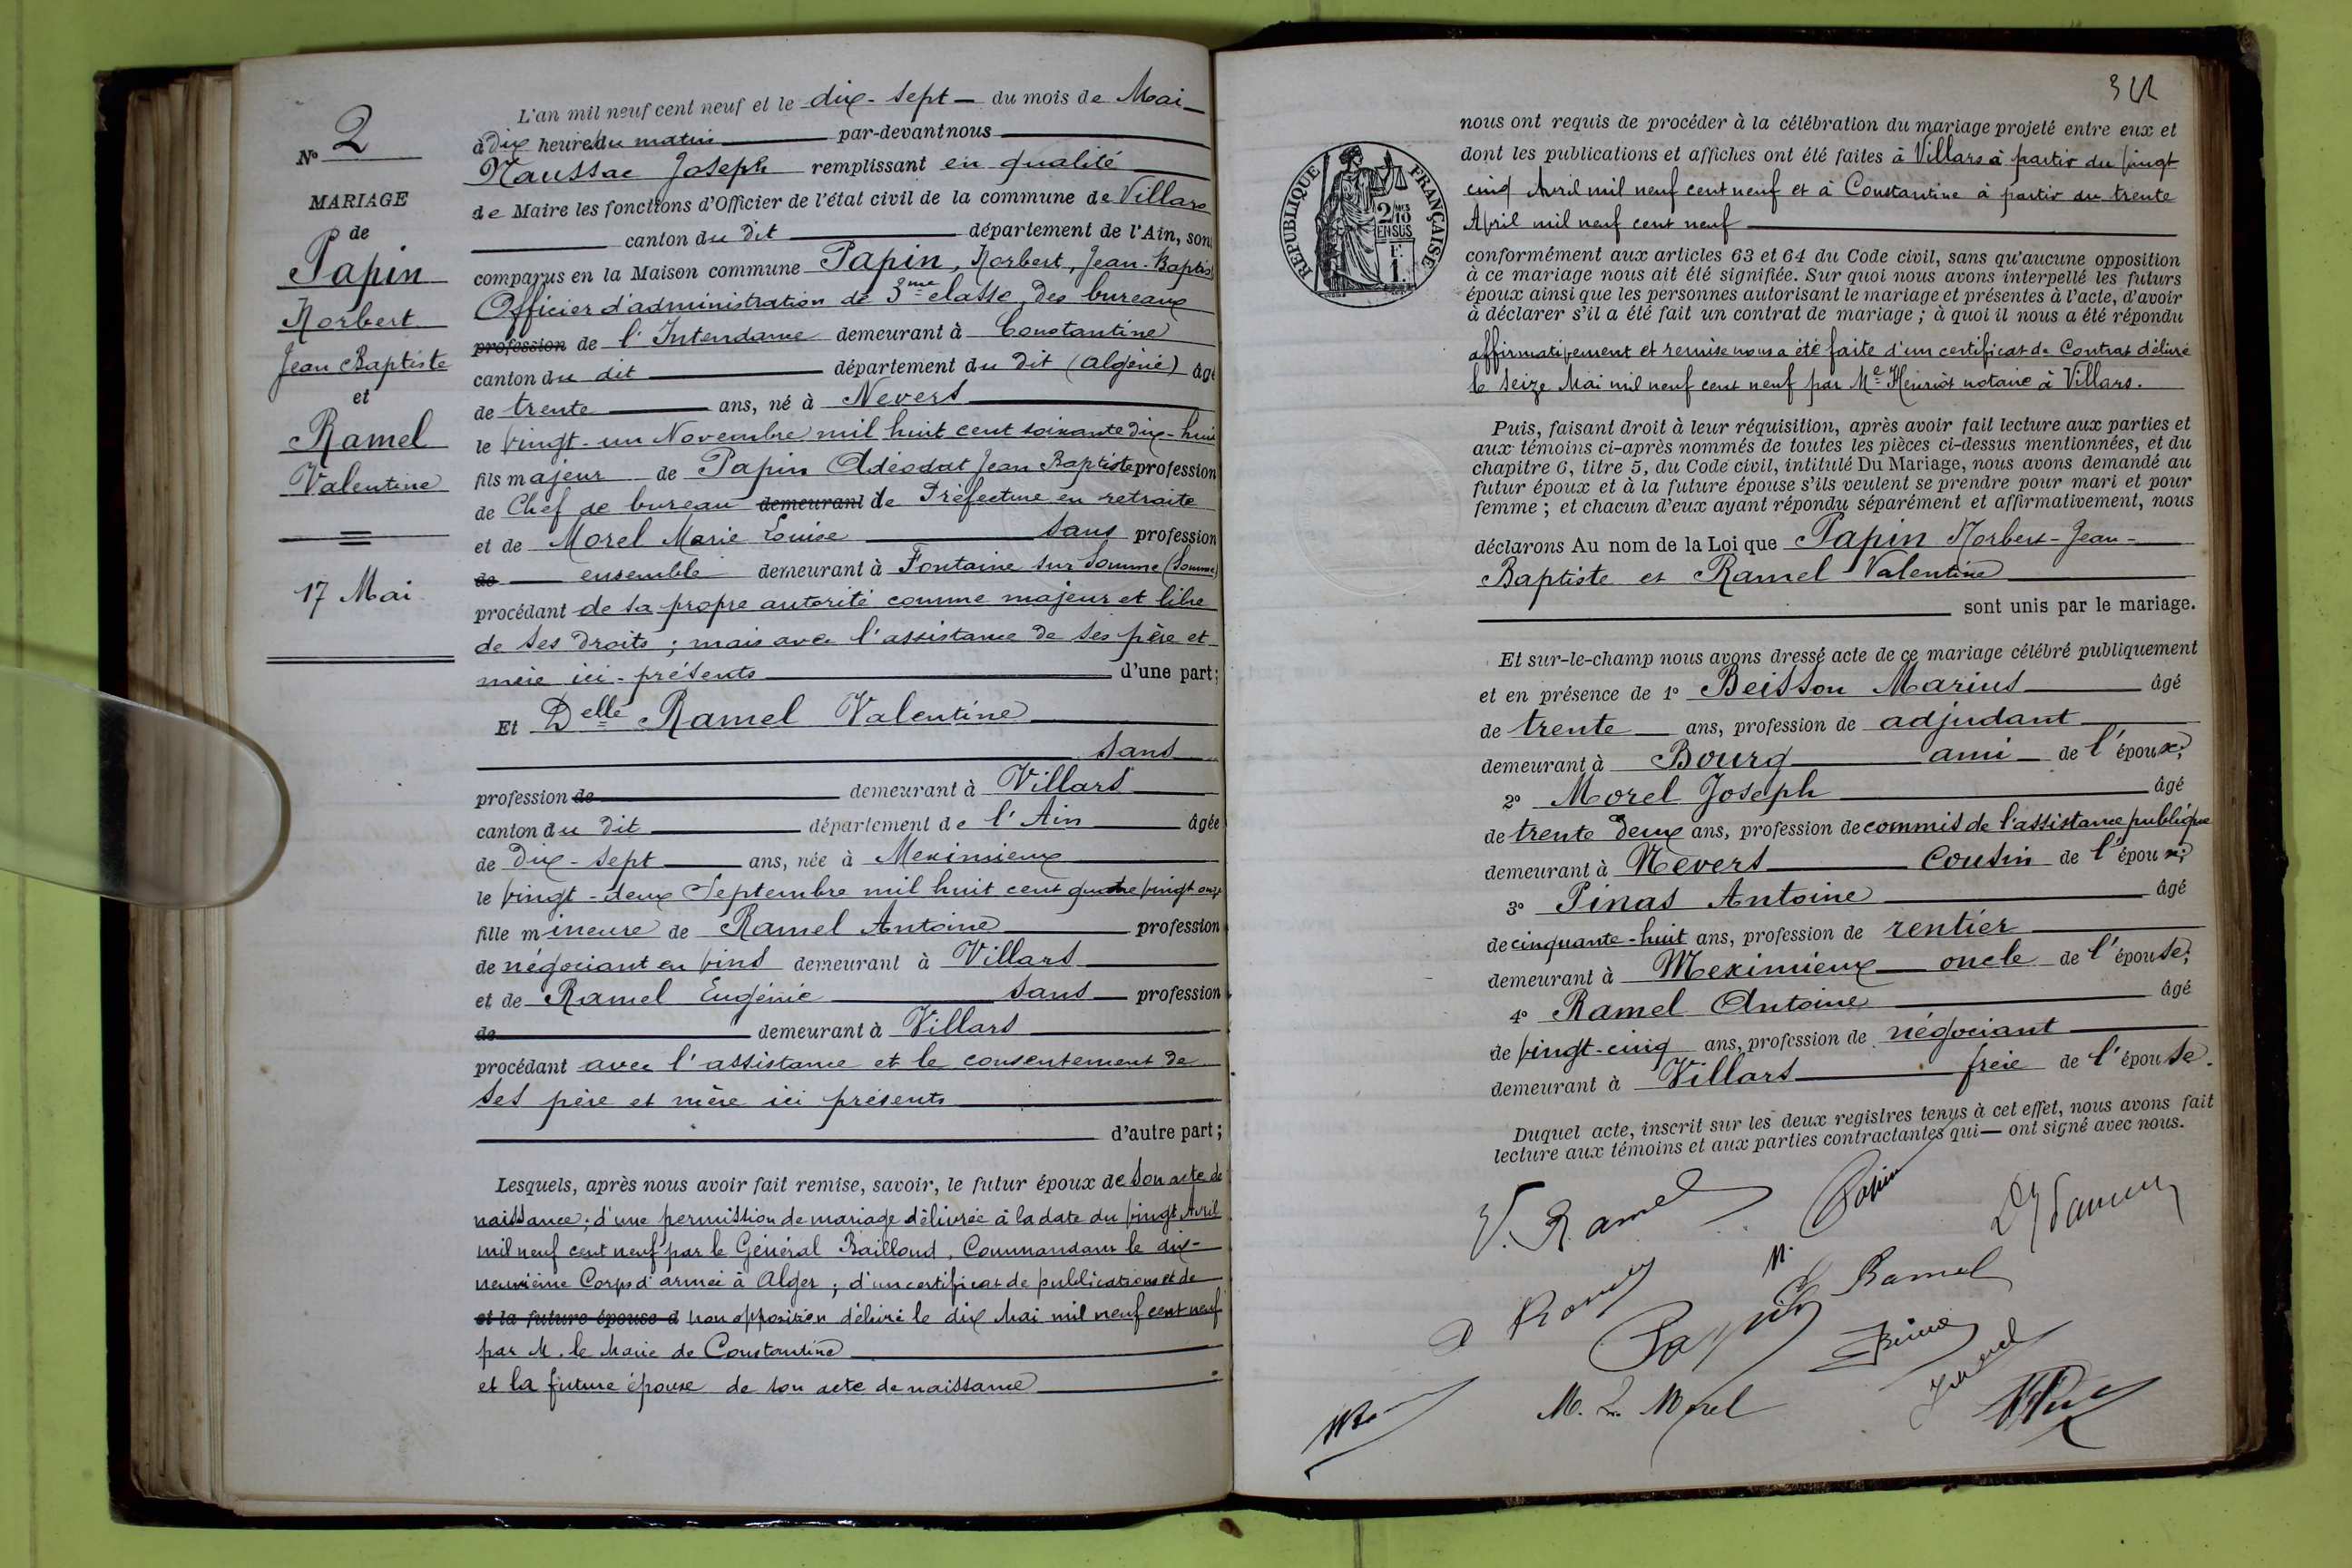 N° 2
MARIAGE
de
Papin
Norbert
Jean Baptiste
et
Ramel
Valentine
17 Mai
L'an mil neuf cent neuf et le dix-sept du mois de Mai
à Dix heures du matin par-devant nous
Naussac Joseph remplissant en qualité
de Maire les fonctions d'Officier de l'état civil de la commune de Villars
canton du dit département de l'Ain, sont
comparus en la Maison commune Papin, Norbert, Jean-Baptiste
Officier d'administration de 3me classe, des bureaux
profession de l'Intendance demeurant à Constantine
canton du dit département du dit (Algérie) âgé
de trente ans, né à Nevers
le vingt-un Novembre mil huit cent soixante dix-huit
fils majeur de Papin Adéodat Jean Baptiste profession
de Chef de bureau demeurant de Préfecture en retraite
et de Morel Marie Louise sans profession
de ensemble demeurant à Fontaine sur Somme (Somme)
procédant de sa propre autorité comme majeur et libre
de ses droits ; mais avec l'assistance de ses père et
mère ici-présents d'une part ;
Et Delle Ramel Valentine
sans
profession de demeurant à Villars
canton du dit département de l'Ain âgée
de Dix-sept ans, née à Meximieux
le vingt-deux Septembre mil huit cent quatre vingt onze
fille mineure de Ramel Antoine profession
de négociant en vins demeurant à Villars
et de Ramel Eugénie sans profession
de demeurant à Villars
procédant avec l'assistance et le consentement de
ses père et mère ici présents
d'autre part ;
Lesquels, après nous avoir fait remise, savoir, le futur époux de son acte de
naissance ; d'une permission de mariage délivrée à la date du vingt Avril
mil neuf cent neuf par le Général Bailloud, Commandant le dix-
neuvième Corps d'armée à Alger ; d'un certificat de publications et de
et la future épouse d non opposition délivré le dix Mai mil neuf cent neuf
par M. le Maire de Constantine
et la future épouse de son acte de naissance
REPUBLIQUE FRANÇAISE
2/10
EN SUS
1 F.
nous ont requis de procéder à la célébration du mariage projeté entre eux et
dont les publications et affiches ont été faites à Villars à partir du vingt
cinq Avril mil neuf cent neuf et à Constantine à partir du trente
Avril mil neuf cent neuf
conformément aux articles 63 et 64 du Code civil, sans qu'aucune opposition
à ce mariage nous ait été signifiée. Sur quoi nous avons interpellé les futurs
époux ainsi que les personnes autorisant le mariage et présentes à l'acte, d'avoir
à déclarer s'il a été fait un contrat de mariage ; à quoi il nous a été répondu
affirmativement et remise nous a été faite d'un certificat de Contrat délivré
le seize Mai mil neuf cent neuf par Me Henriot notaire à Villars.
Puis, faisant droit à leur réquisition, après avoir fait lecture aux parties et
aux témoins ci-après nommés de toutes les pièces ci-dessus mentionnées, et du
chapitre 6, titre 5, du Code civil, intitulé Du Mariage, nous avons demandé au
futur époux et à la future épouse s'ils veulent se prendre pour mari et pour
femme ; et chacun d'eux ayant répondu séparément et affirmativement, nous
déclarons Au nom de la Loi que Papin Norbert-Jean-
Baptiste et Ramel Valentine
sont unis par le mariage.
Et sur-le-champ nous avons dressé acte de ce mariage célébré publiquement
et en présence de 1° Beisson Marius âgé
de trente ans, profession de adjudant
demeurant à Bourg ami de l'époux ;
2° Morel Joseph âgé
de trente deux ans, profession de commis de l'assistance publique
demeurant à Nevers Cousin de l'époux ;
3° Pinas Antoine âgé
de cinquante-huit ans, profession de rentier
demeurant à Meximieux oncle de l'épouse ;
4° Ramel Antoine âgé
de vingt-cinq ans, profession de négociant
demeurant à Villars frère de l'épouse.
Duquel acte, inscrit sur les deux registres tenus à cet effet, nous avons fait
lecture aux témoins et aux parties contractantes qui ont signé avec nous.
V. Ramel
N. Papin
Ramel
Papin
M. L. Morel